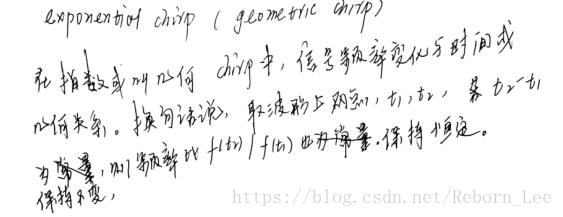 exponential chirp (geometric chirp)
在指数或叫几何 chirp 中, 信号频率变化与时间成
几何关系。换句话说, 取波形上两点, t₁, t₂, 若 t₂-t₁
保持不变, 则频率比 f(t₂)/f(t₁) 也保持恒定。
https://blog.csdn.net/Reborn_Lee